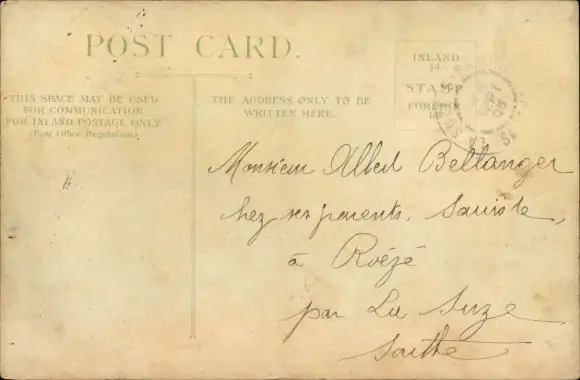 POST CARD.
THIS SPACE MAY BE USED
FOR COMMUNICATION
FOR INLAND POSTAGE ONLY
(Post Office Regulation.)
THE ADDRESS ONLY TO BE
WRITTEN HERE.
INLAND
STAMP
FOREIGN
Monsieur Albert Bellanger
chez ses parents,
à Roézé
par La Suze
Sarthe